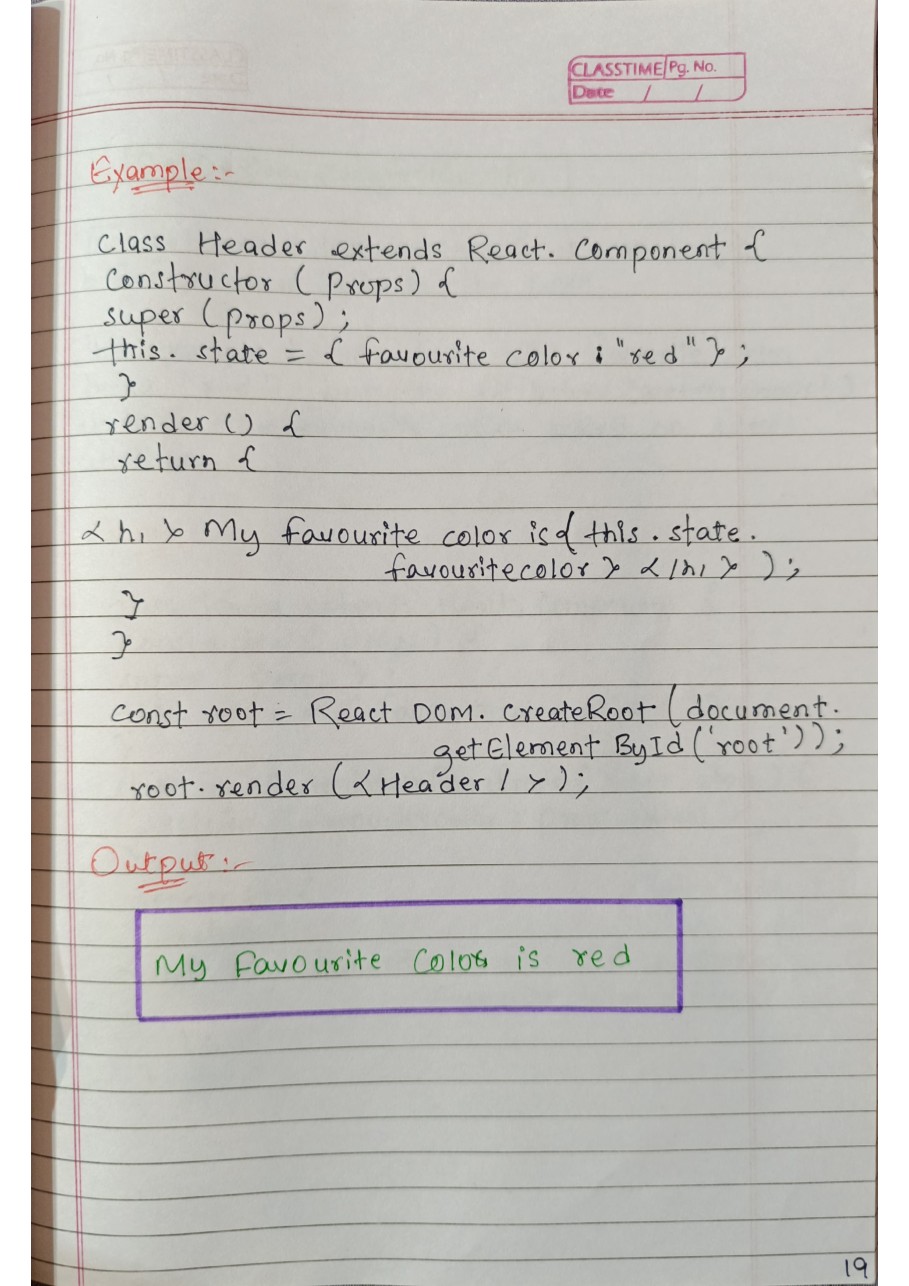 CLASSTIME Pg. No.
Date / /
Example :-
Class Header extends React. Component {
Constructor ( Props) {
super (props) ;
this. state = { favourite color : "red" } ;
}
render () {
return {
< h1 > My favourite color is { this . state .
favouritecolor } < /h1 > ) ;
}
}
const root = React DOM. createRoot ( document.
getElement ById ('root')) ;
root. render (< Header / >) ;
Output :-
My Favourite Color is red
19